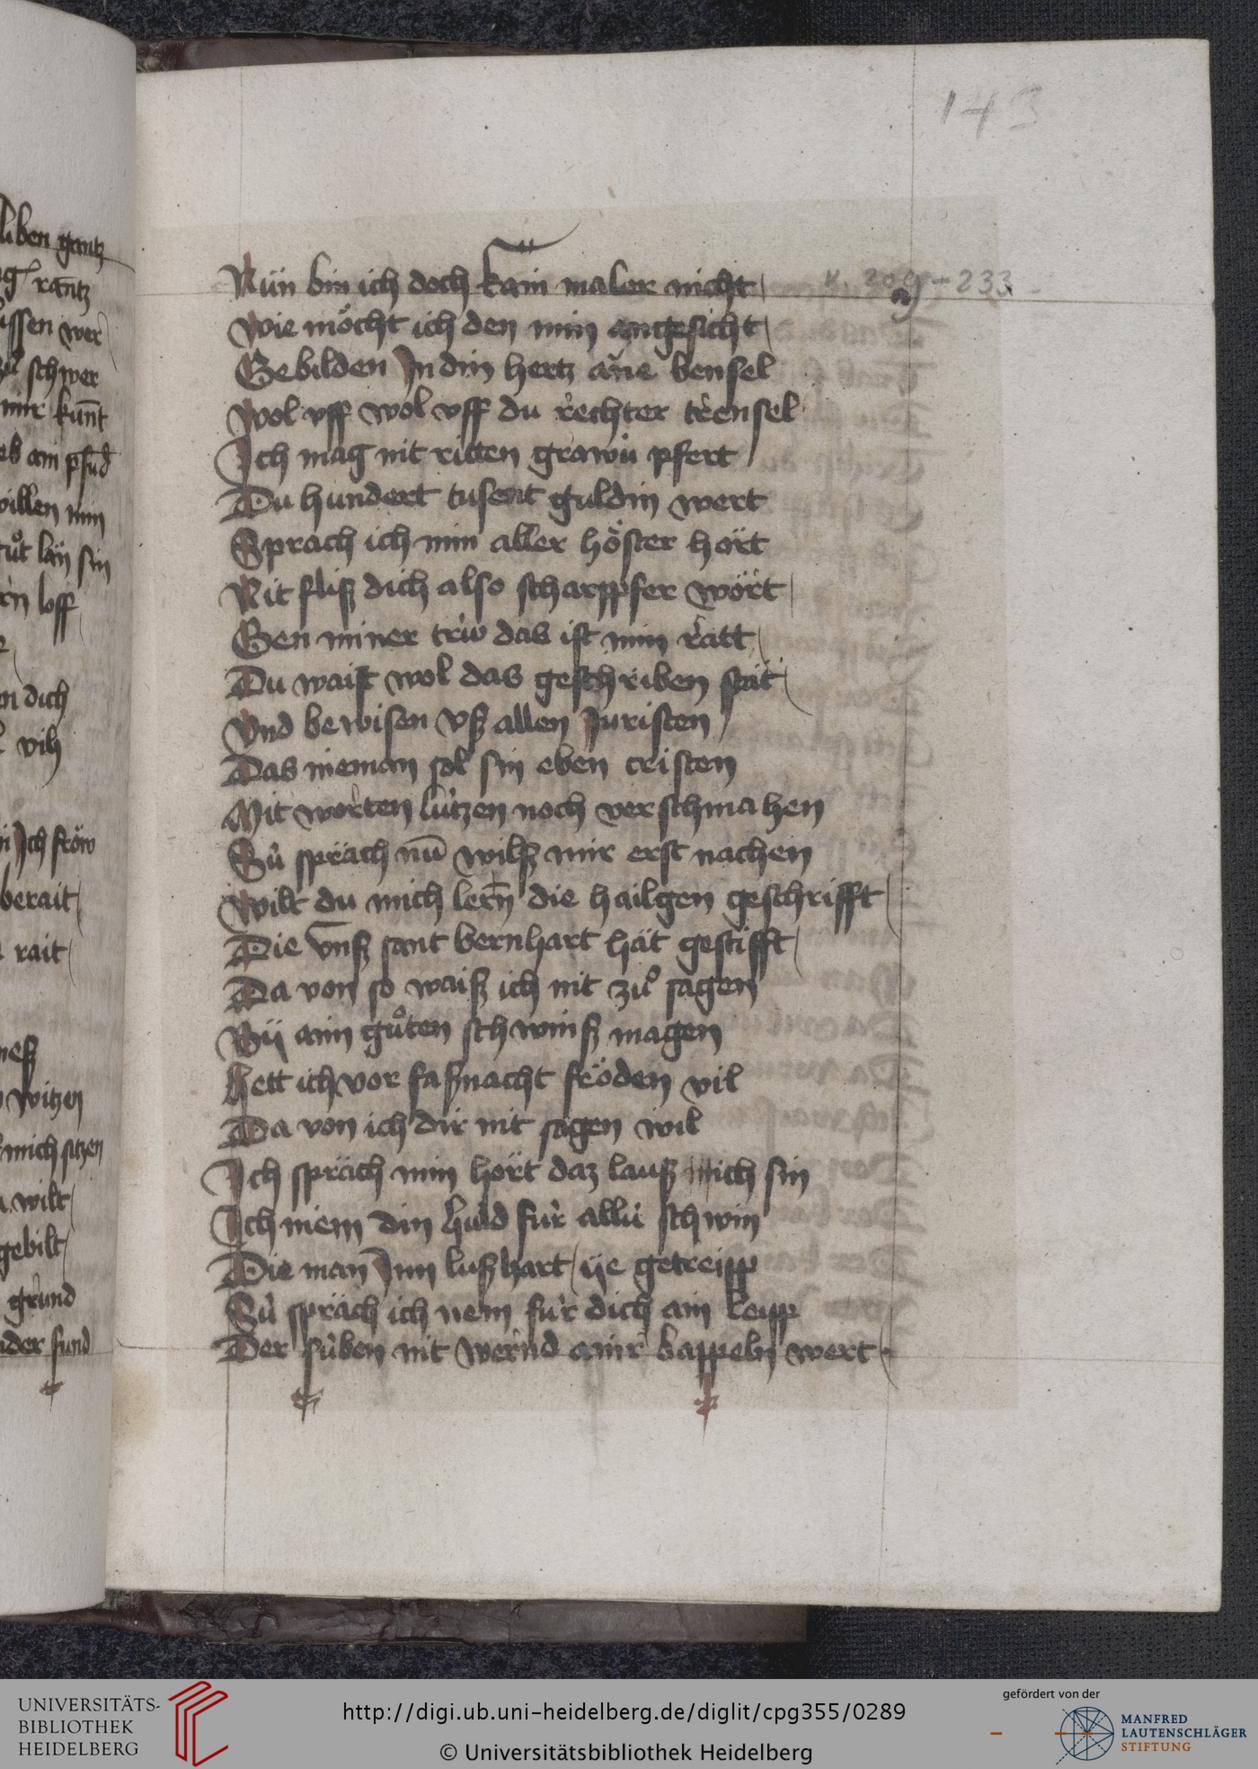 143
v. 209-233
Nün bin ich doch kain maler nicht
Wie möcht ich den min angesicht
Gebilden In din hertz ane bensel
Wol vff wol vff du rechter trensel
Ich mag nit ritten grawü pfert
Du hundert tusent guldin wert
Sprach ich min aller höster hort
Nit fliß dich also scharppfer wört
Gen miner trüw das ist min ratt
Du waist wol das geschriben stät
Vnd bewisen vß allen Juristen
Das nieman sol sin eben cristen
Mit worten lützen noch verschmahen
Sü spräch nū wilß mir erst nachen
Wilt du mich lern̄ die hailgen geschrifft
Die vnß sant bernhart hät gestifft
Da von so waiß ich nit zuͦ sagen
By aim guͦten schwinß magen
Hett ich vor faßnacht fröden vil
Da von ich dir nit sagen wil
Ich spräch min hort daz lauß mich sin
Ich niem din huld für allü schwin
Die man Inn lußhart ye getreipp
Sü spräch ich nem für dich ain leipp
Der süben nit wernd ainr bappeln wert
liben gantz
rantz
ussen wer
schwer
mir kunt
ain pfud
willen min
län sin
loff
en dich
vih
Ich fröw
berait
rait
witzen
mich sitzen
wilt
gebilt
grund
der fund
UNIVERSITÄTS-
BIBLIOTHEK
HEIDELBERG
http://digi.ub.uni-heidelberg.de/diglit/cpg355/0289
© Universitätsbibliothek Heidelberg
gefördert von der
MANFRED
LAUTENSCHLÄGER
STIFTUNG